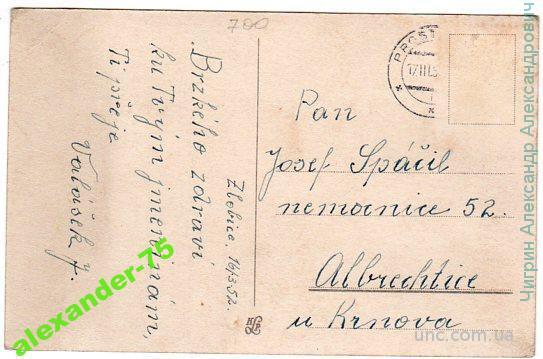 700
Zlobice. 16/3.52.
Brzkého zdraví
ku Tvým jmeninám,
Ti přeje
Valášek J.
PROST
17.III.5
Pan
Josef Spáčil
nemocnice 52.
Albrechtice
u Krnova
alexander-75
Чигрин Александр Александрович
unc.com.ua